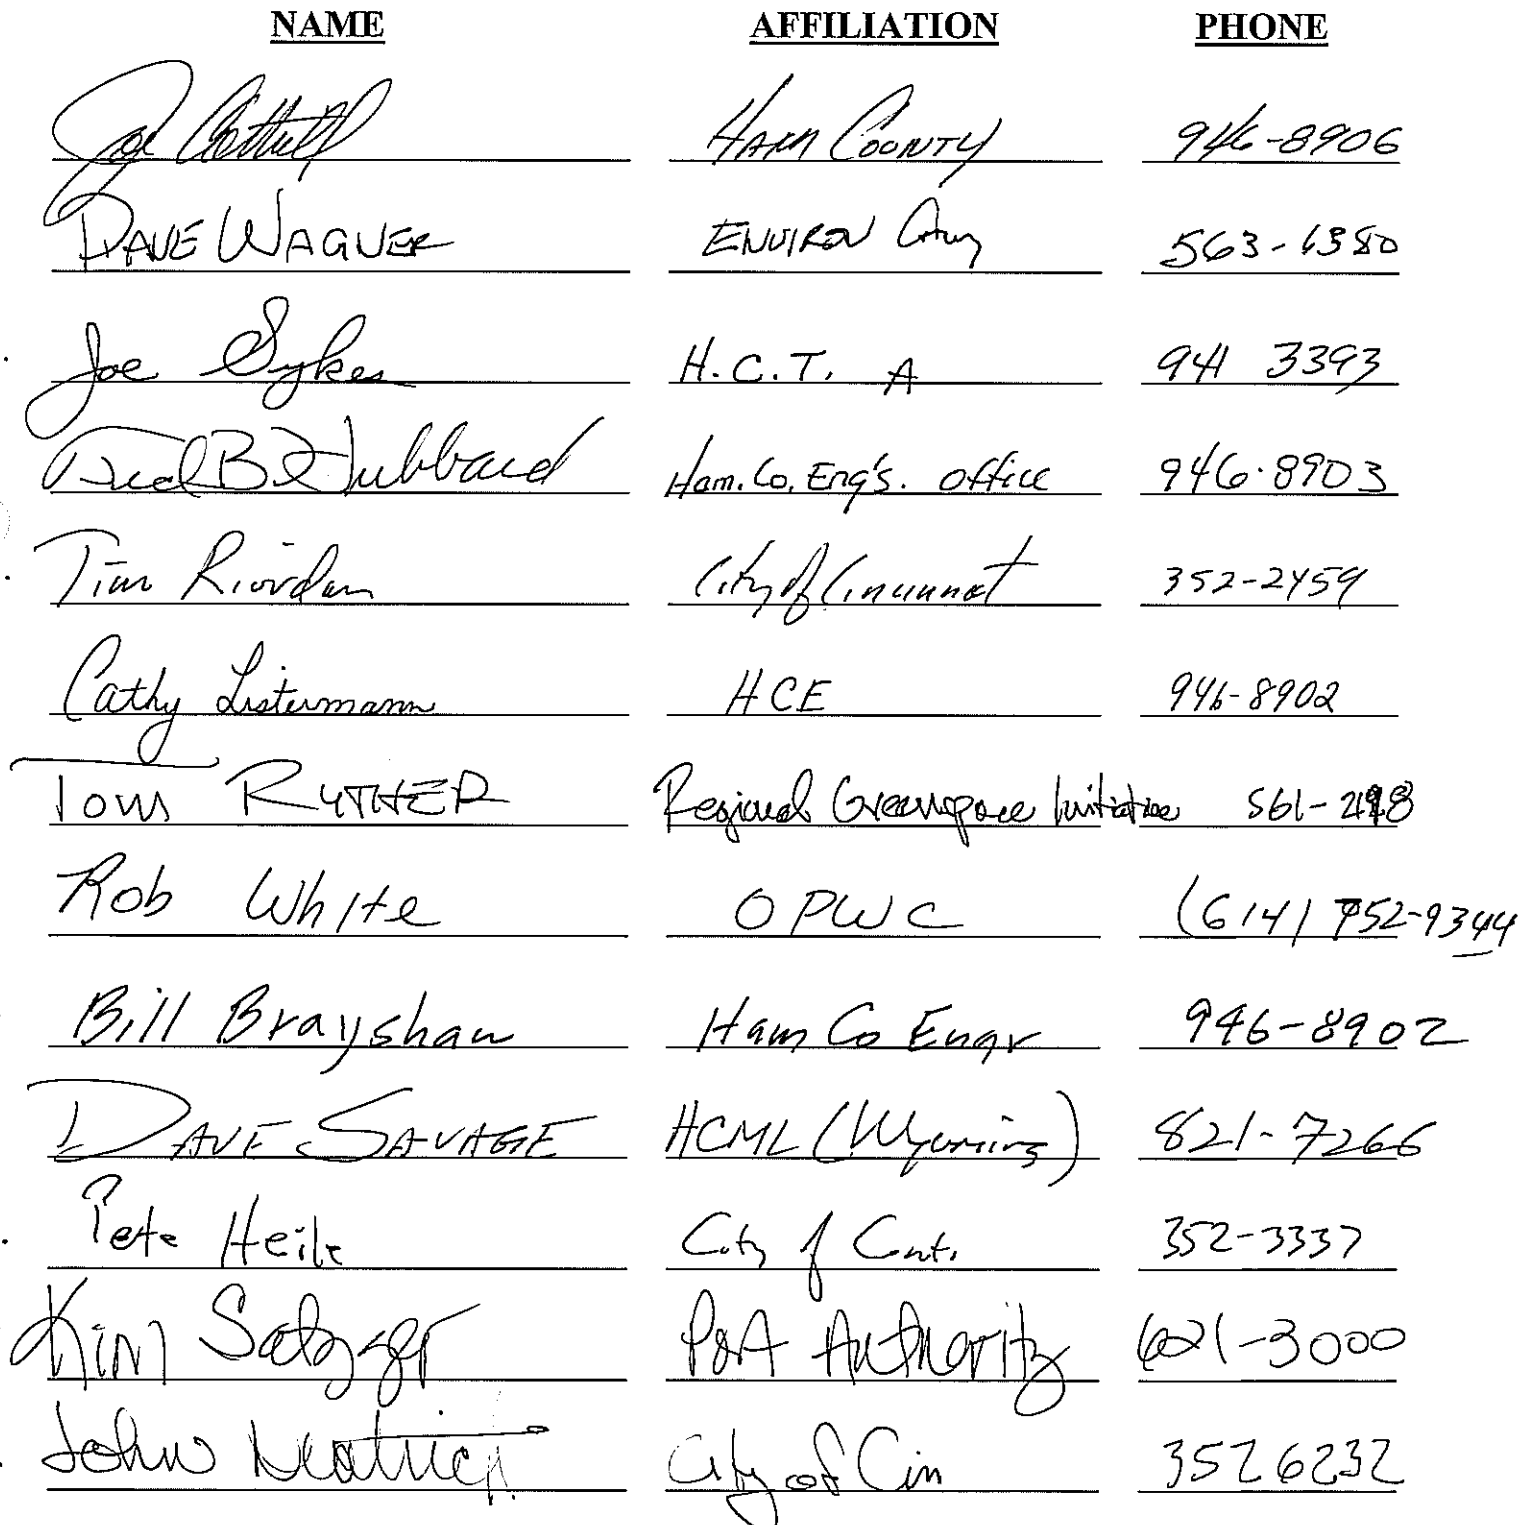 NAME AFFILIATION PHONE
Joe Cottrill HAM COONTY 946-8906
DAVE WAGNER ENVIRON 563-6380
Joe Sykes H.C.T. A 941 3393
Fred B Hubbard Ham. Co. Eng's. office 946-8903
Tim Riordan City of Cincinnat 352-2459
Cathy Listermann HCE 946-8902
Tom RUTHER Regional Greenspace Initiative 561-
Rob White OPWC (614) 752-9344
Bill Brayshaw Ham Co Engr 946-8902
DAVE SAVAGE HCML (Wyoming) 821-7266
Pete Heile City of Cinti. 352-3337
Kim Satzger Port Authority 621-3000
John Deatrick City of Cin 352 6232